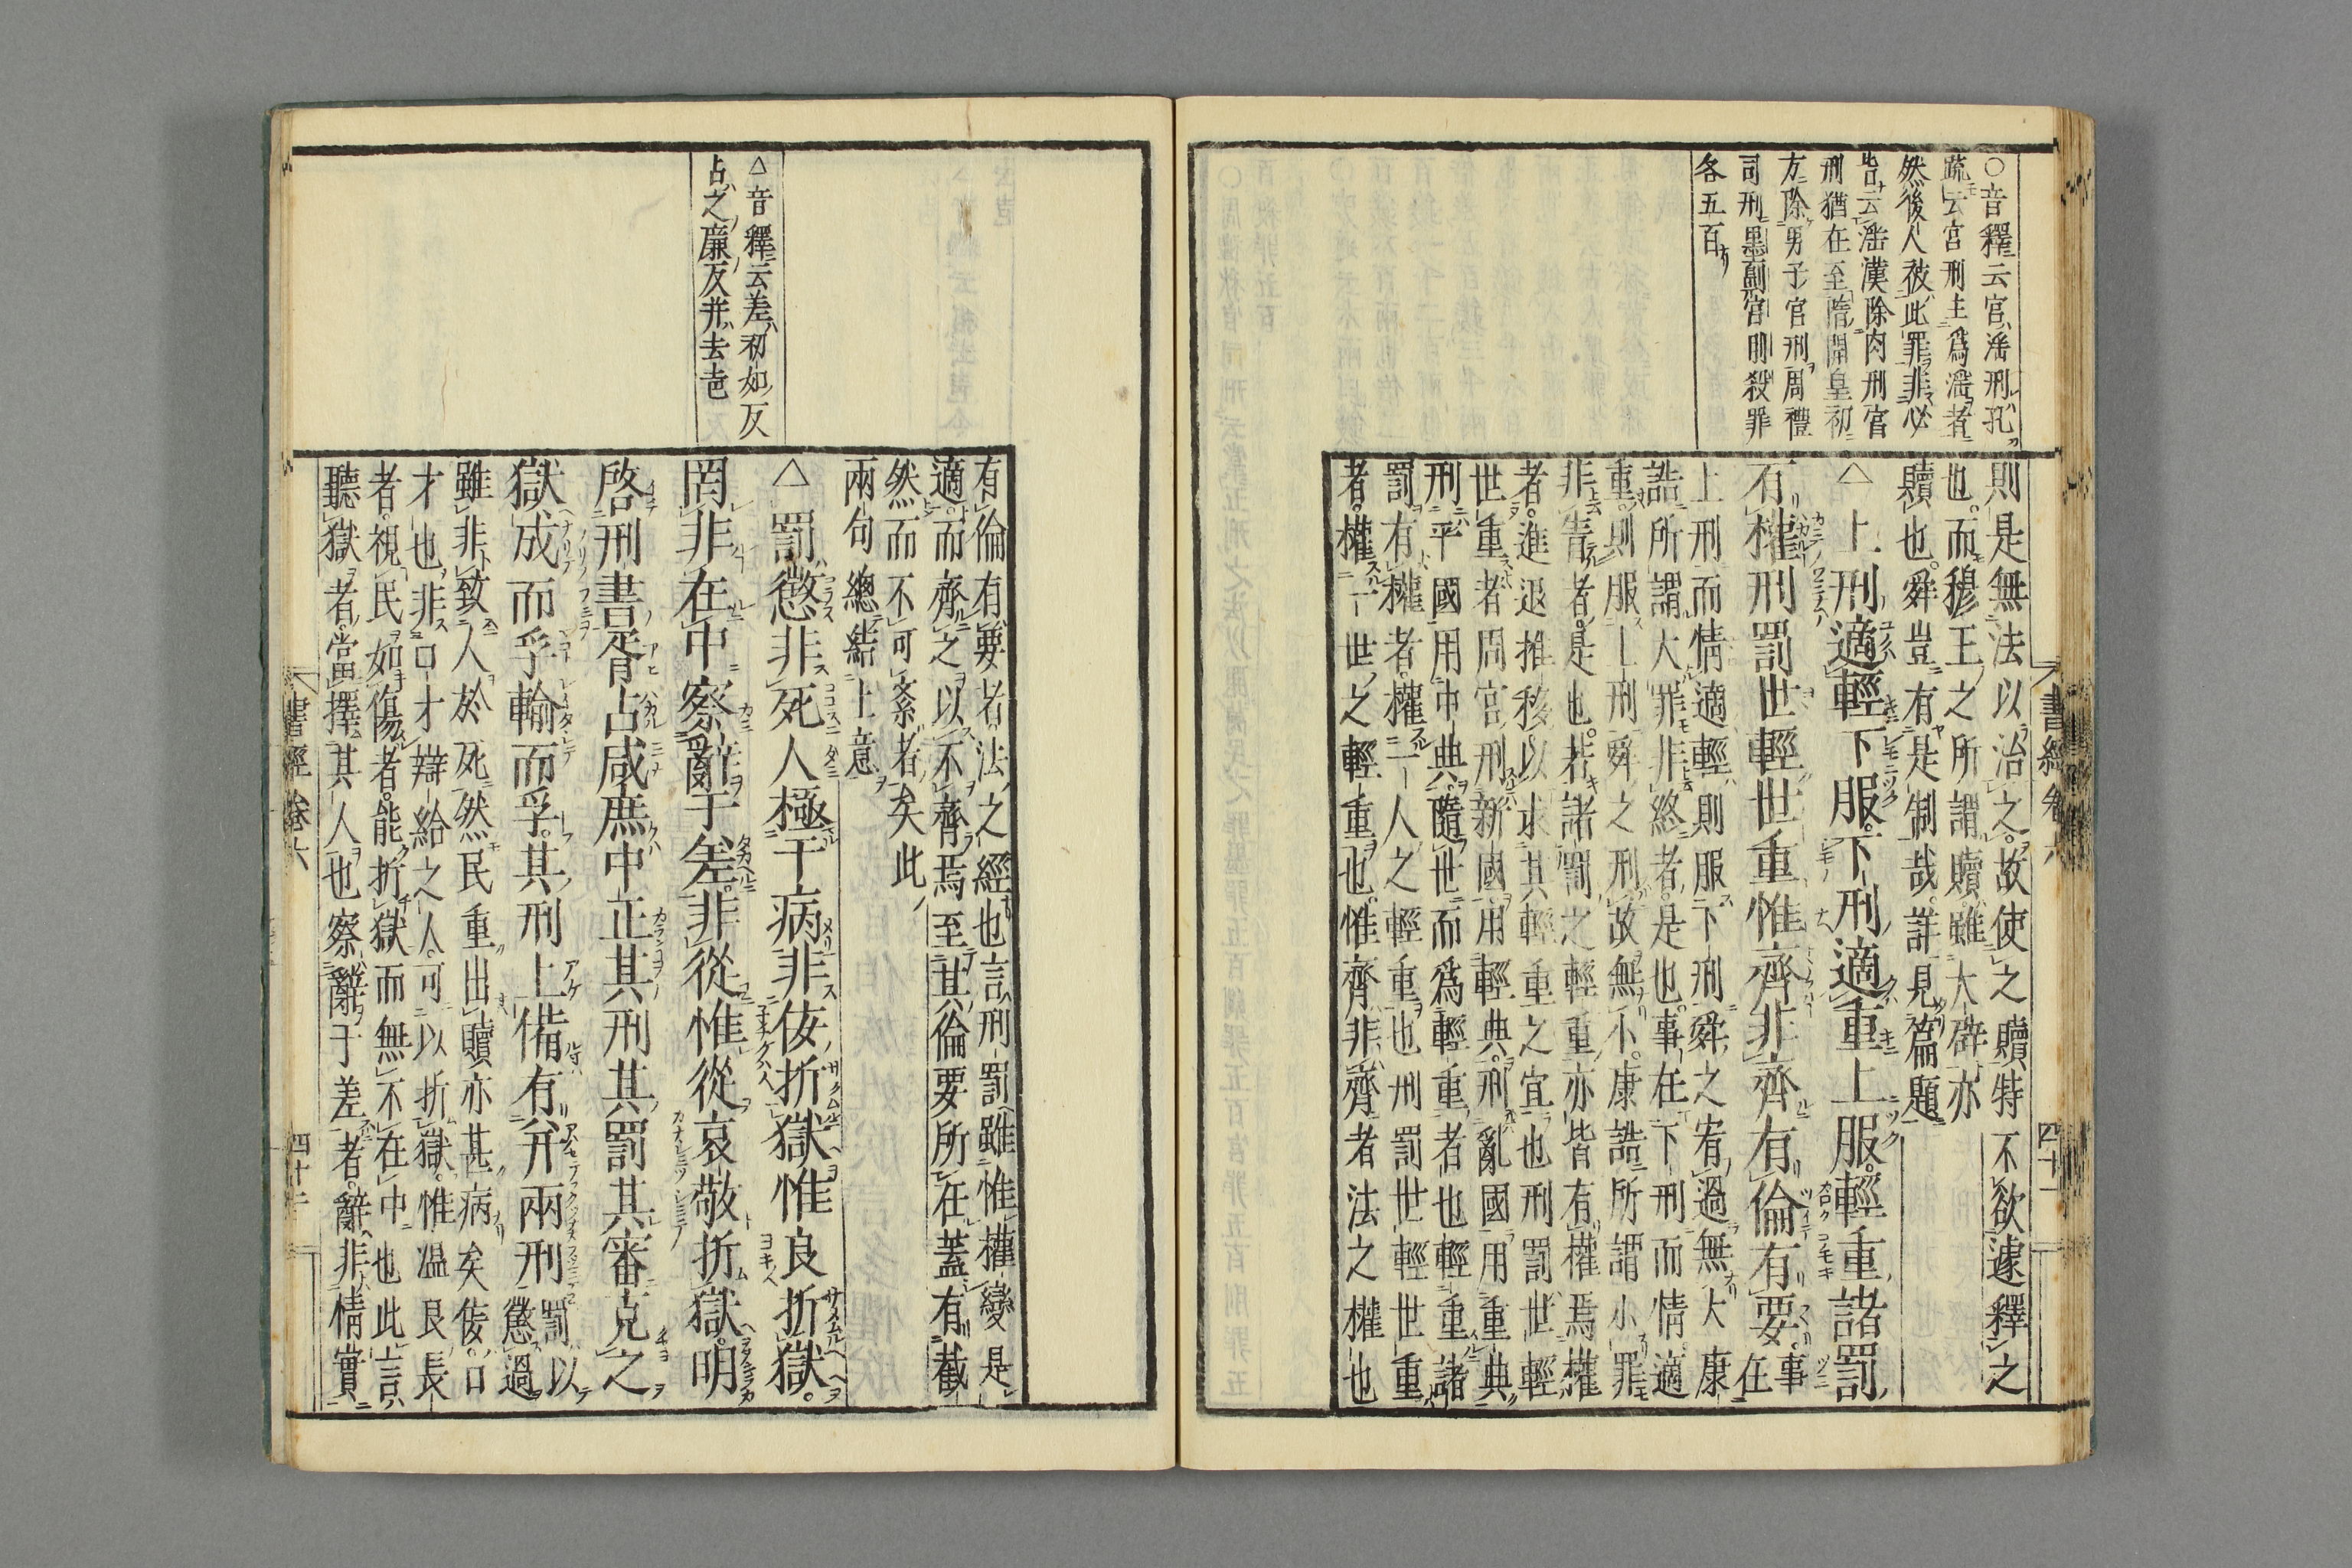 ○音釋云宮淫刑孔
疏云宮刑主爲淫者
然後人被此罪非必
皆云淫漢除肉刑宮
刑猶在至隋開皇初
方除男子宮刑周禮
司刑墨劓宮刖殺罪
各五百
書經卷六
四十一
則是無法以治之故使之贖特不欲遽釋之
也而穆王之所謂贖雖大辟亦
贖也舜豈有是制哉詳見篇題
△上刑適輕下服下刑適重上服輕重諸罰
有權刑罰世輕世重惟齊非齊有倫有要事在
上刑而情適輕則服下刑舜之宥過無大康
誥所謂大罪非終者是也事在下刑而情適
重則服上刑舜之刑故無小康誥所謂小罪
非眚者是也若諸罰之輕重亦皆有權焉權
者進退推移以求其輕重之宜也刑罰世輕
世重者周官刑新國用輕典刑亂國用重典
刑平國用中典隨世而爲輕重者也輕重諸
罰有權者權一人之輕重也刑罰世輕世重
者權一世之輕重也惟齊非齊者法之權也
△音釋云差初如反
占之廉反并去聲
有倫有要者法之經也言刑罰雖惟權變是
適而齊之以不齊焉至其倫要所在蓋有截
然而不可紊者矣此
兩句總結上意
△罰懲非死人極于病非佞折獄惟良折獄
罔非在中察辭于差非從惟從哀敬折獄明
啓刑書胥占咸庶中正其刑其罰其審克之
獄成而孚輸而孚其刑上備有并兩刑罰以懲過
雖非致人於死然民重出贖亦甚病矣佞口
才也非口才辯給之人可以折獄惟温良長
者視民如傷者能折獄而無不在中也此言
聽獄者當擇其人也察辭于差者辭非情實
書經卷六